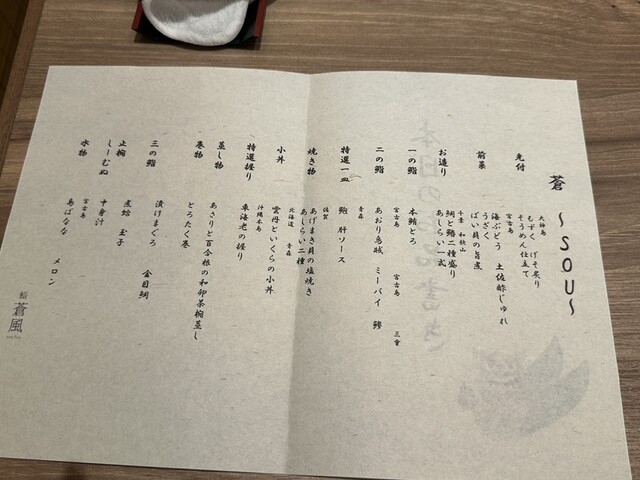 蒼 ～SOU～
先付
大神島
もずく げそ炙り
そうめん仕立て
前菜
宮古島
海ぶどう 土佐酢じゅれ
うざく
ばい貝の旨煮
お造り
千葉 和歌山
鯛と鰆二種盛り
あしらい一式
一の鮨
本鮪とろ
二の鮨
宮古島 宮古島 三重
あおり烏賊 ミーバイ 鯵
特選一皿
青森
鮑 肝ソース
焼き物
佐賀
あげまき貝の塩焼き
あしらい二種
小丼
北海道 青森
雲丹といくらの小丼
特選握り
沖縄本島
車海老の握り
蒸し物
あさりと百合根の和卵茶椀蒸し
巻物
とろたく巻
三の鮨
漬けまぐろ 金目鯛
煮蛤 玉子
止椀
しーむぬ 中身汁
水物
宮古島
島ばなな メロン
鮨 蒼風